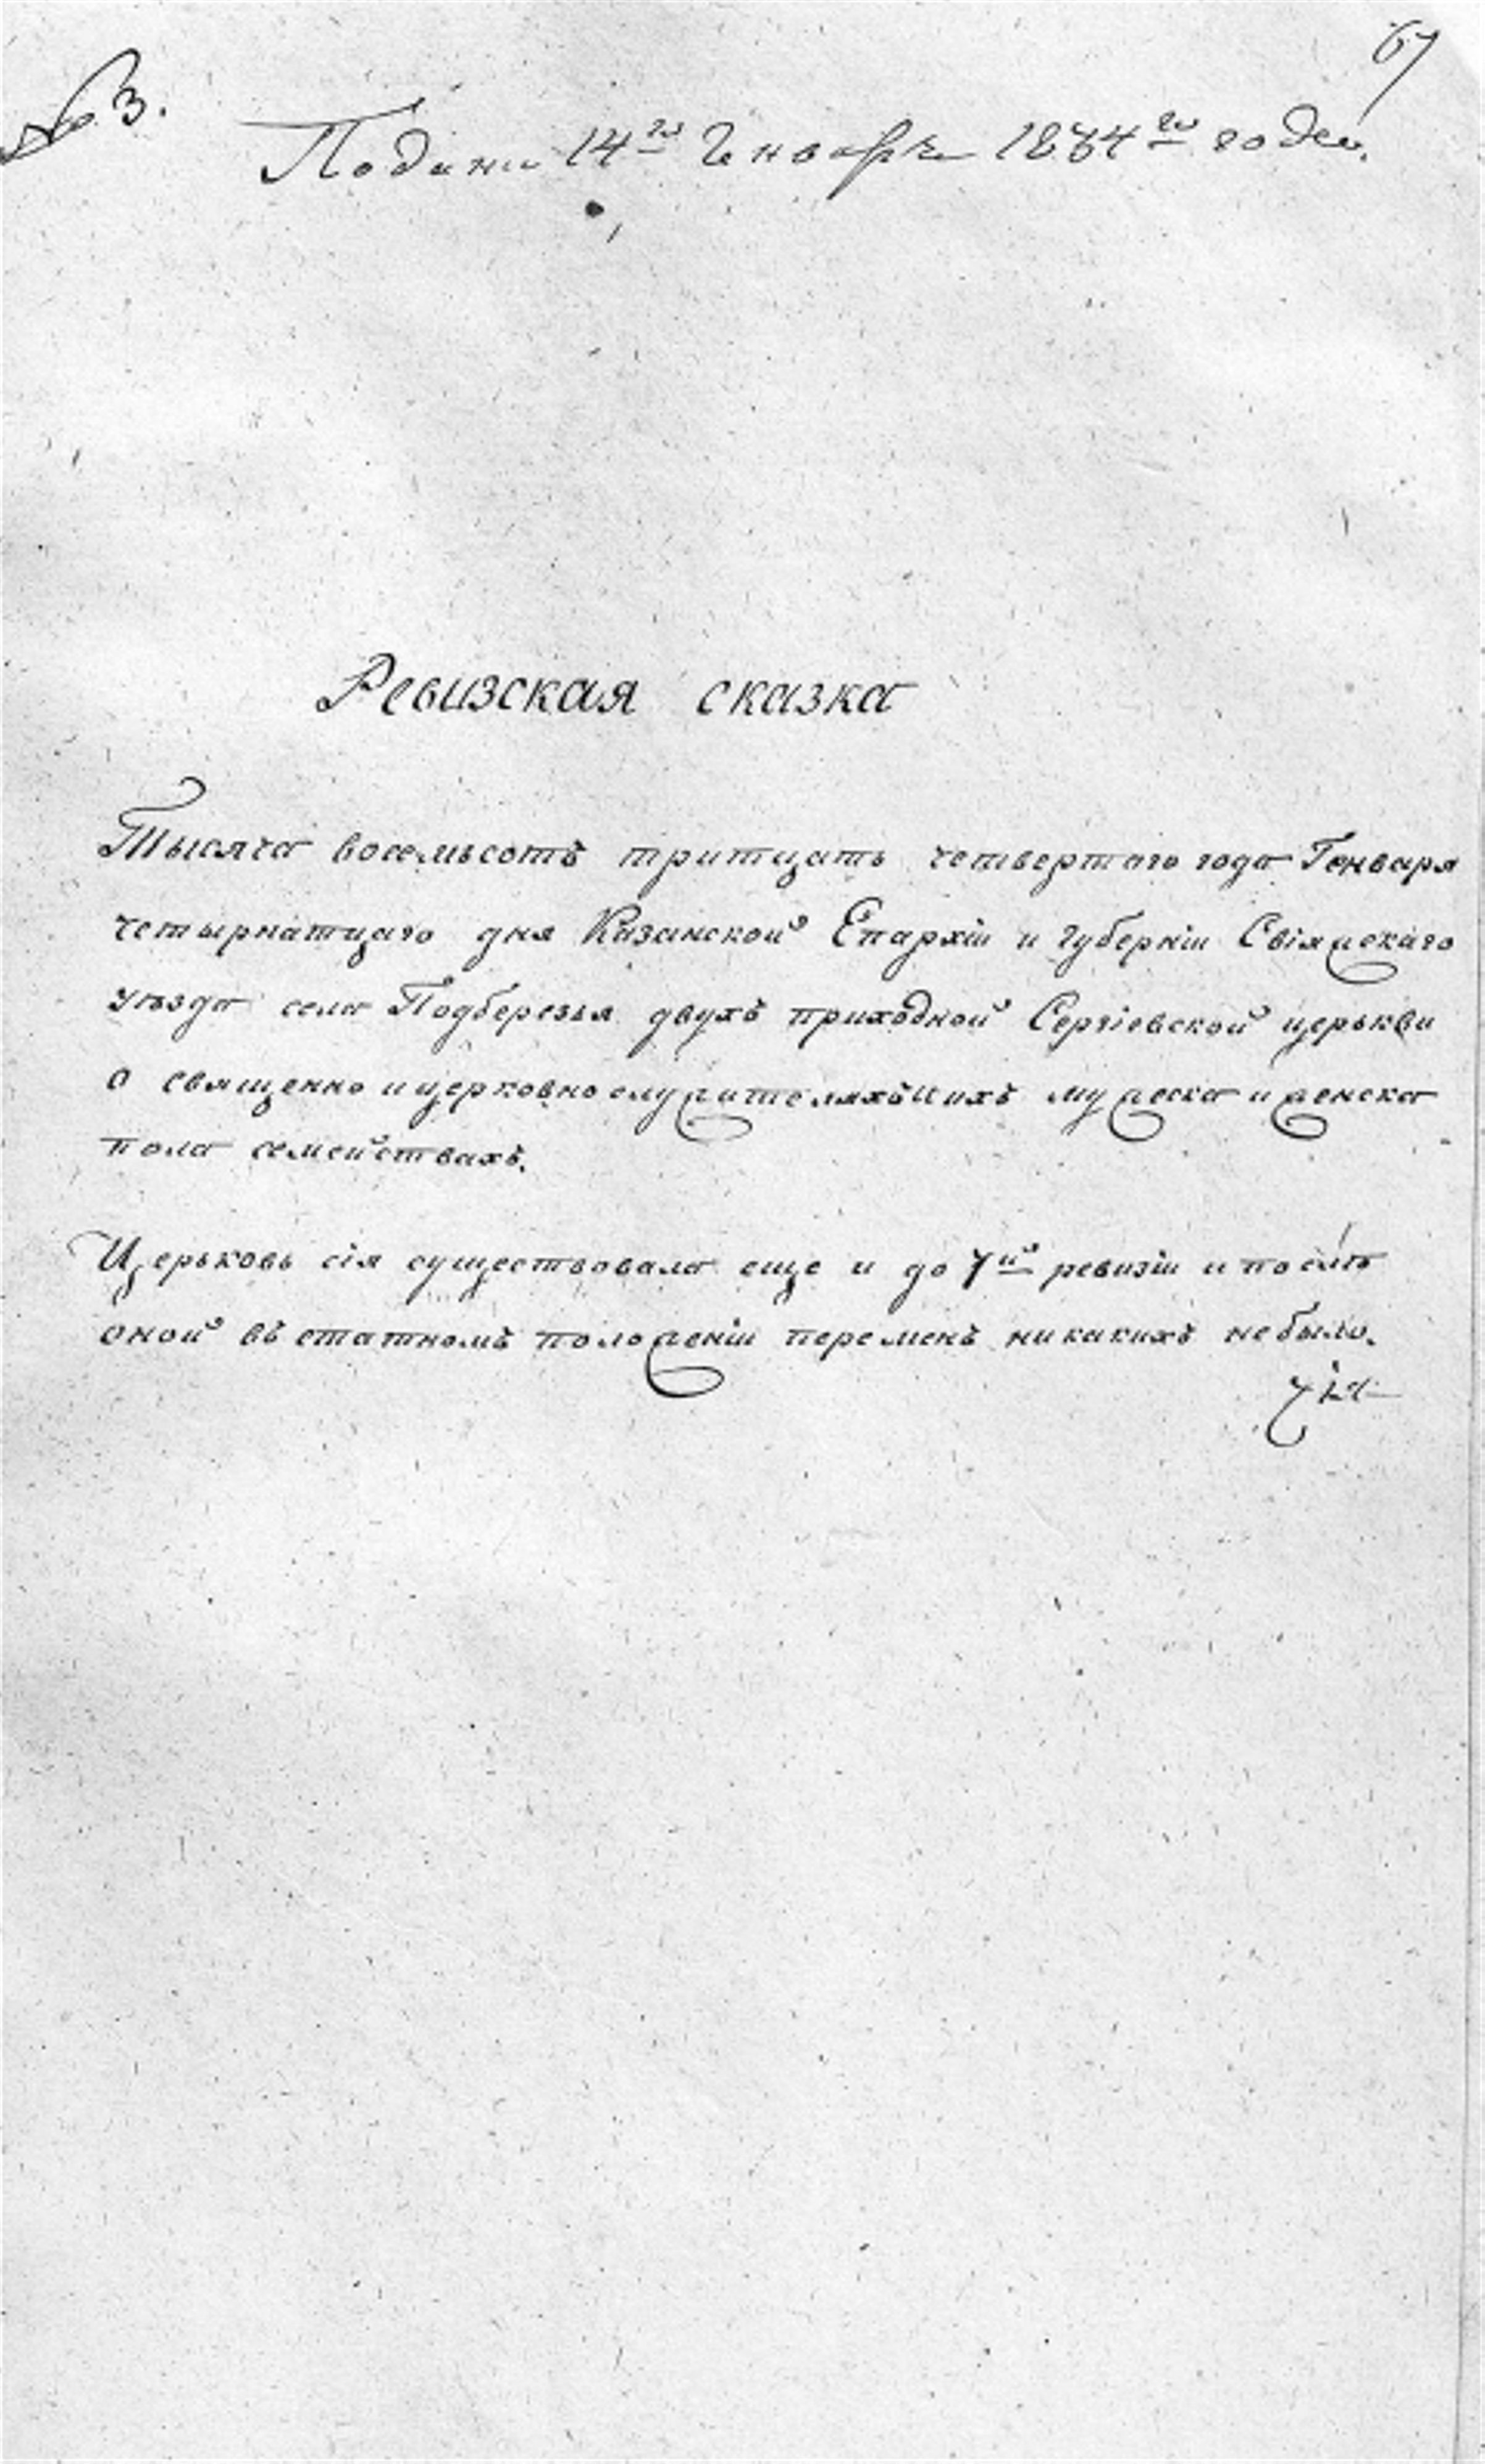 67
№ 3.
Подана 14го Генваря 1834го года.
Ревизская сказка
Тысяча восемьсотъ тритцать четвертаго года Генваря
четырнатцаго дня Казанской Епархіи и губерніи Свіяжскаго
уѣзда села Подберезья двухъ приходной Сергіевской церькви
о священно и церковно служителяхъ и ихъ мужеска и женска
пола семействахъ.
Церьковь сія существовала еще и до 7й ревизіи и послѣ
оной въ статномъ положеніи перемѣнъ никакихъ небыло.